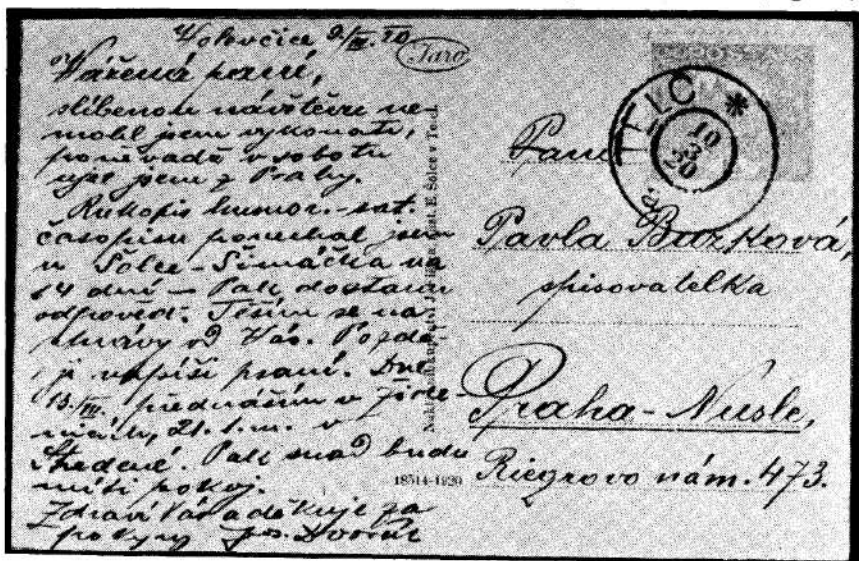 Volevčice 9/III. 20
Vážená paní,
slíbenou návštěvu ne-
mohl jsem vykonati,
poněvadž v sobotu
ujel jsem z Prahy.
Rukopis humor.-sat.
časopisu ponechal jsem
u Šolce-Šimáčka na
14 dní — Pak dostanu
odpověď. Těším se na
zprávy od Vás. Pozdě
ji napíši psaní. Dne
13./III. přednáším v
21. t. m. v
Pak snad budu
míti pokoj.
Zdraví Vás a děkuje za
pokyny Jos. Dvořák
Jaro
18514-1920
TELČ
10
3
20
Paní
Pavla Buzková,
spisovatelka
Praha-Nusle,
Riegrovo nám. 473.